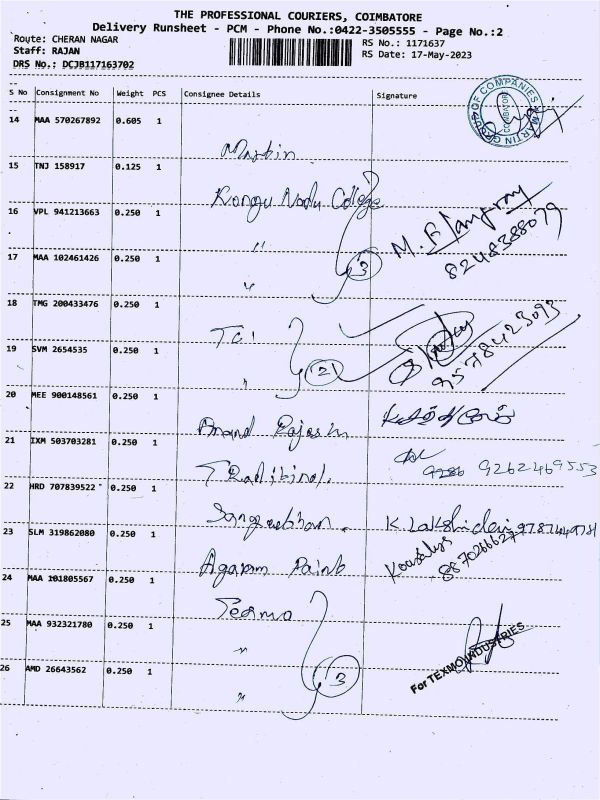 THE PROFESSIONAL COURIERS, COIMBATORE
Delivery Runsheet - PCM - Phone No.:0422-3505555 - Page No.:2
Route: CHERAN NAGAR
RS No.: 1171637
Staff: RAJAN
RS Date: 17-May-2023
DRS No.: DCJB117163702
S No Consignment No Weight PCS Consignee Details Signature
GROUP OF COMPANIES MARTIN COIMBATORE
14 MAA 570267892 0.605 1
Martin
15 TNJ 158917 0.125 1
Kongu Nadu College
16 VPL 941213663 0.250 1
"
M.
8248388079
17 MAA 102461426 0.250 1
" 3
18 TMG 200433476 0.250 1
TCI
19 SVM 2654535 0.250 1
" 2
9578423093
20 MEE 900148561 0.250 1
Anand Rajesh
21 IXM 503703281 0.250 1
9262469553
22 HRD 707839522 0.250 1
K. Lakshidevi 9787449781
23 SLM 319862080 0.250 1
Agaram Paint
Kousalya
8870266627
24 MAA 101805567 0.250 1
25 MAA 932321780 0.250 1
"
For TEXMO INDUSTRIES
26 AMD 26643562 0.250 1
" 3